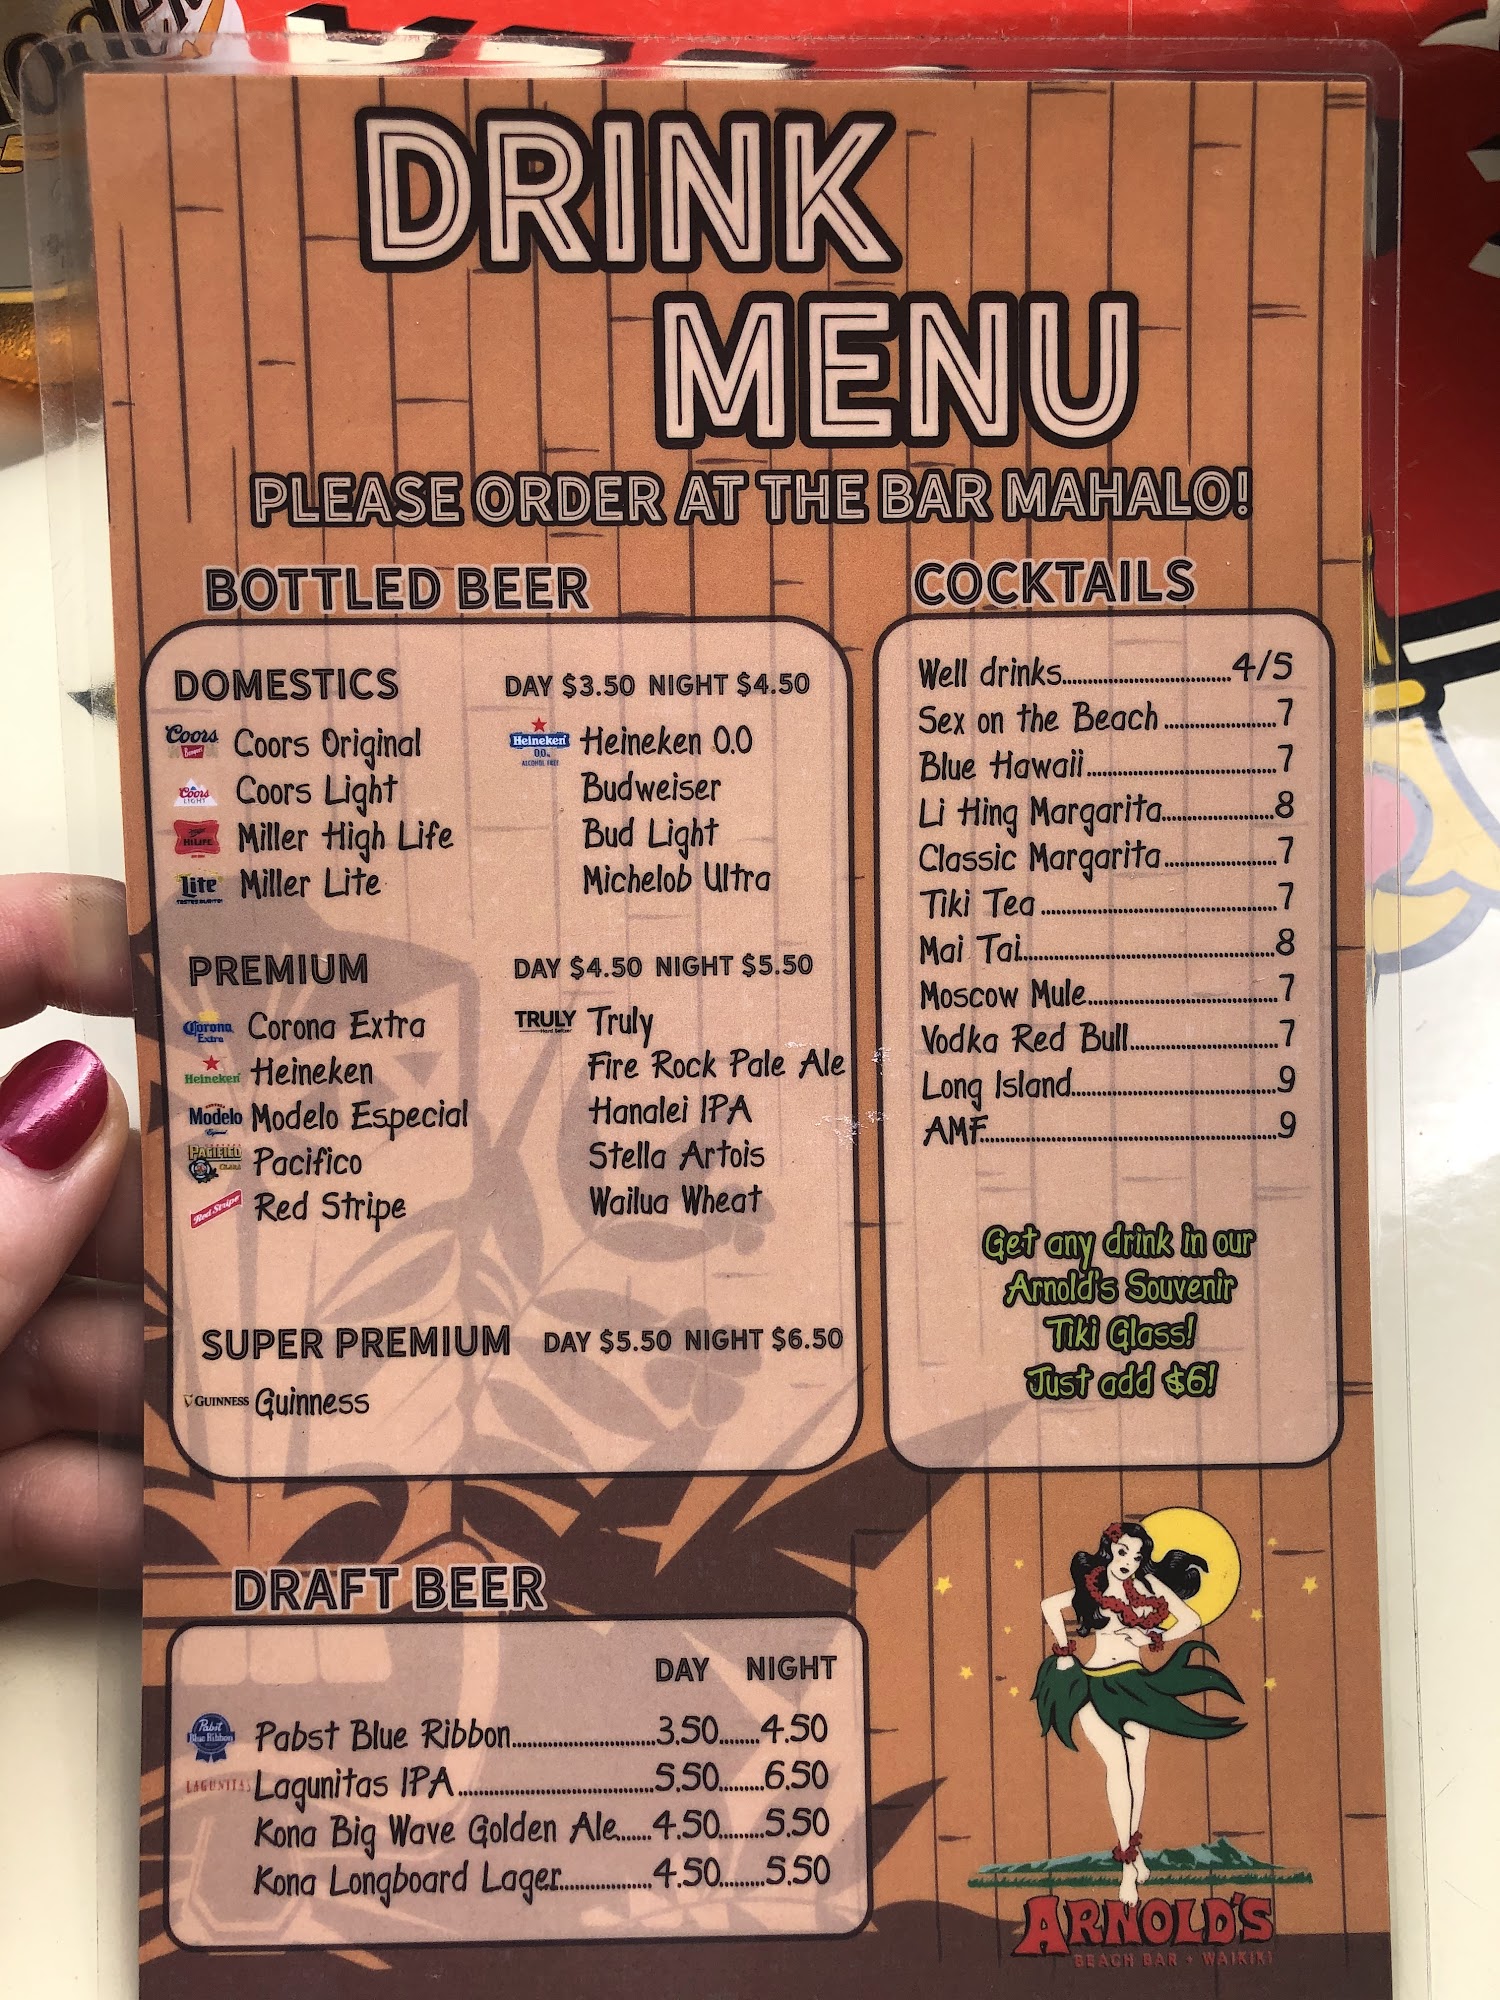 DRINK
MENU
PLEASE ORDER AT THE BAR MAHALO!
BOTTLED BEER
DOMESTICS DAY $3.50 NIGHT $4.50
Coors Banquet Coors Original
Coors LIGHT Coors Light
HI LIFE Miller High Life
Lite Miller Lite
Heineken 0.0 ALCOHOL FREE Heineken 0.0
Budweiser
Bud Light
Michelob Ultra
PREMIUM DAY $4.50 NIGHT $5.50
Corona Extra Corona Extra
Heineken Heineken
Modelo Especial Modelo Especial
PACIFICO CLARA Pacifico
Red Stripe Red Stripe
TRULY Hard Seltzer Truly
Fire Rock Pale Ale
Hanalei IPA
Stella Artois
Wailua Wheat
SUPER PREMIUM DAY $5.50 NIGHT $6.50
GUINNESS Guinness
COCKTAILS
Well drinks 4/5
Sex on the Beach 7
Blue Hawaii 7
Li Hing Margarita 8
Classic Margarita 7
Tiki Tea 7
Mai Tai 8
Moscow Mule 7
Vodka Red Bull 7
Long Island 9
AMF 9
Get any drink in our
Arnold's Souvenir
Tiki Glass!
Just add $6!
DRAFT BEER
DAY NIGHT
Pabst Blue Ribbon Pabst Blue Ribbon 3.50 4.50
LAGUNITAS Lagunitas IPA 5.50 6.50
Kona Big Wave Golden Ale 4.50 5.50
Kona Longboard Lager 4.50 5.50
ARNOLD'S
BEACH BAR + WAIKIKI